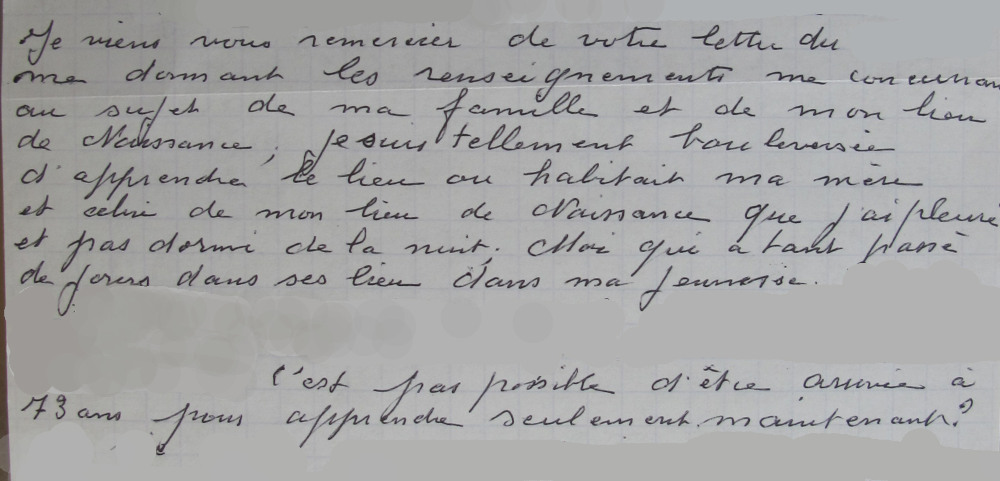 Je viens vous remercier de votre lettre du
me donnant les renseignements me concernan
au sujet de ma famille et de mon lieu
de Naissance, je suis tellement bouleversée
d'apprendre le lieu ou habitait ma mère
et celui de mon lieu de Naissance que j'ai pleuré
et pas dormi de la nuit. Moi qui a tant passé
de jours dans ses lieu dans ma jeunesse.
C'est pas possible d'être arrivée à
73 ans pour apprendre seulement maintenant?